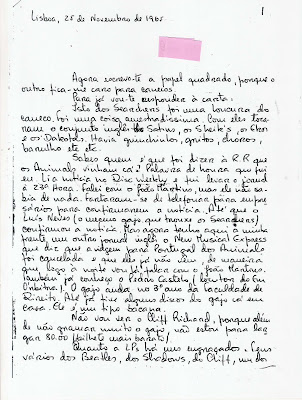 1
Lisboa, 25 de Novembro de 1965
Agora escrevo-te a papel quadrado, porque o
outro fica-me caro para correios.
Para já vou-te responder à carta.
Isto dos Searchers foi uma loucura do
caneco. Foi uma coisa amestradissima. Com eles toca-
ram o conjunto inglês os Satins, os Sheik's, os Ekos
e os Dakotas. Havia guinchinhos, gritos, choros,
barulho etc etc.
Sabes quem é que foi dizer à R.R que
os Animals vinham cá? Palavra de honra que fui
eu. Li a notícia no Disc Weekly e fui levar o jornal
à 23ª Hora. Falei com o João Martins, mas ele não sabia
de nada. Fartaram-se de telefonar para empre-
sários para confirmarem a notícia. Até que o
Luís Neves (o mesmo gajo que trouxe os Searchers)
confirmou a notícia. Mas agora tenho aqui à minha
frente um outro jornal inglês o New Musical Express
que diz que a viagem para Portugal dos Animals
foi cancelada e que eles já não vêm, de maneira
que logo à noite vou lá falar com o João Martins.
Também já conheço o Pedro Castelo (locutor do Em
Órbita!). O gajo anda no 3º ano da Faculdade de
Direito. Até já tive alguns discos do gajo cá em
casa. Ele é um tipo bacana.
Não vou ver o Cliff Richard, porque além
de não gramar muito o gajo, não estou para lar-
gar 80.00 (bilhete mais barato)
Quanto a LPs há uns engraçados. Tens
vários dos Beatles, dos Shadows, do Cliff, um do